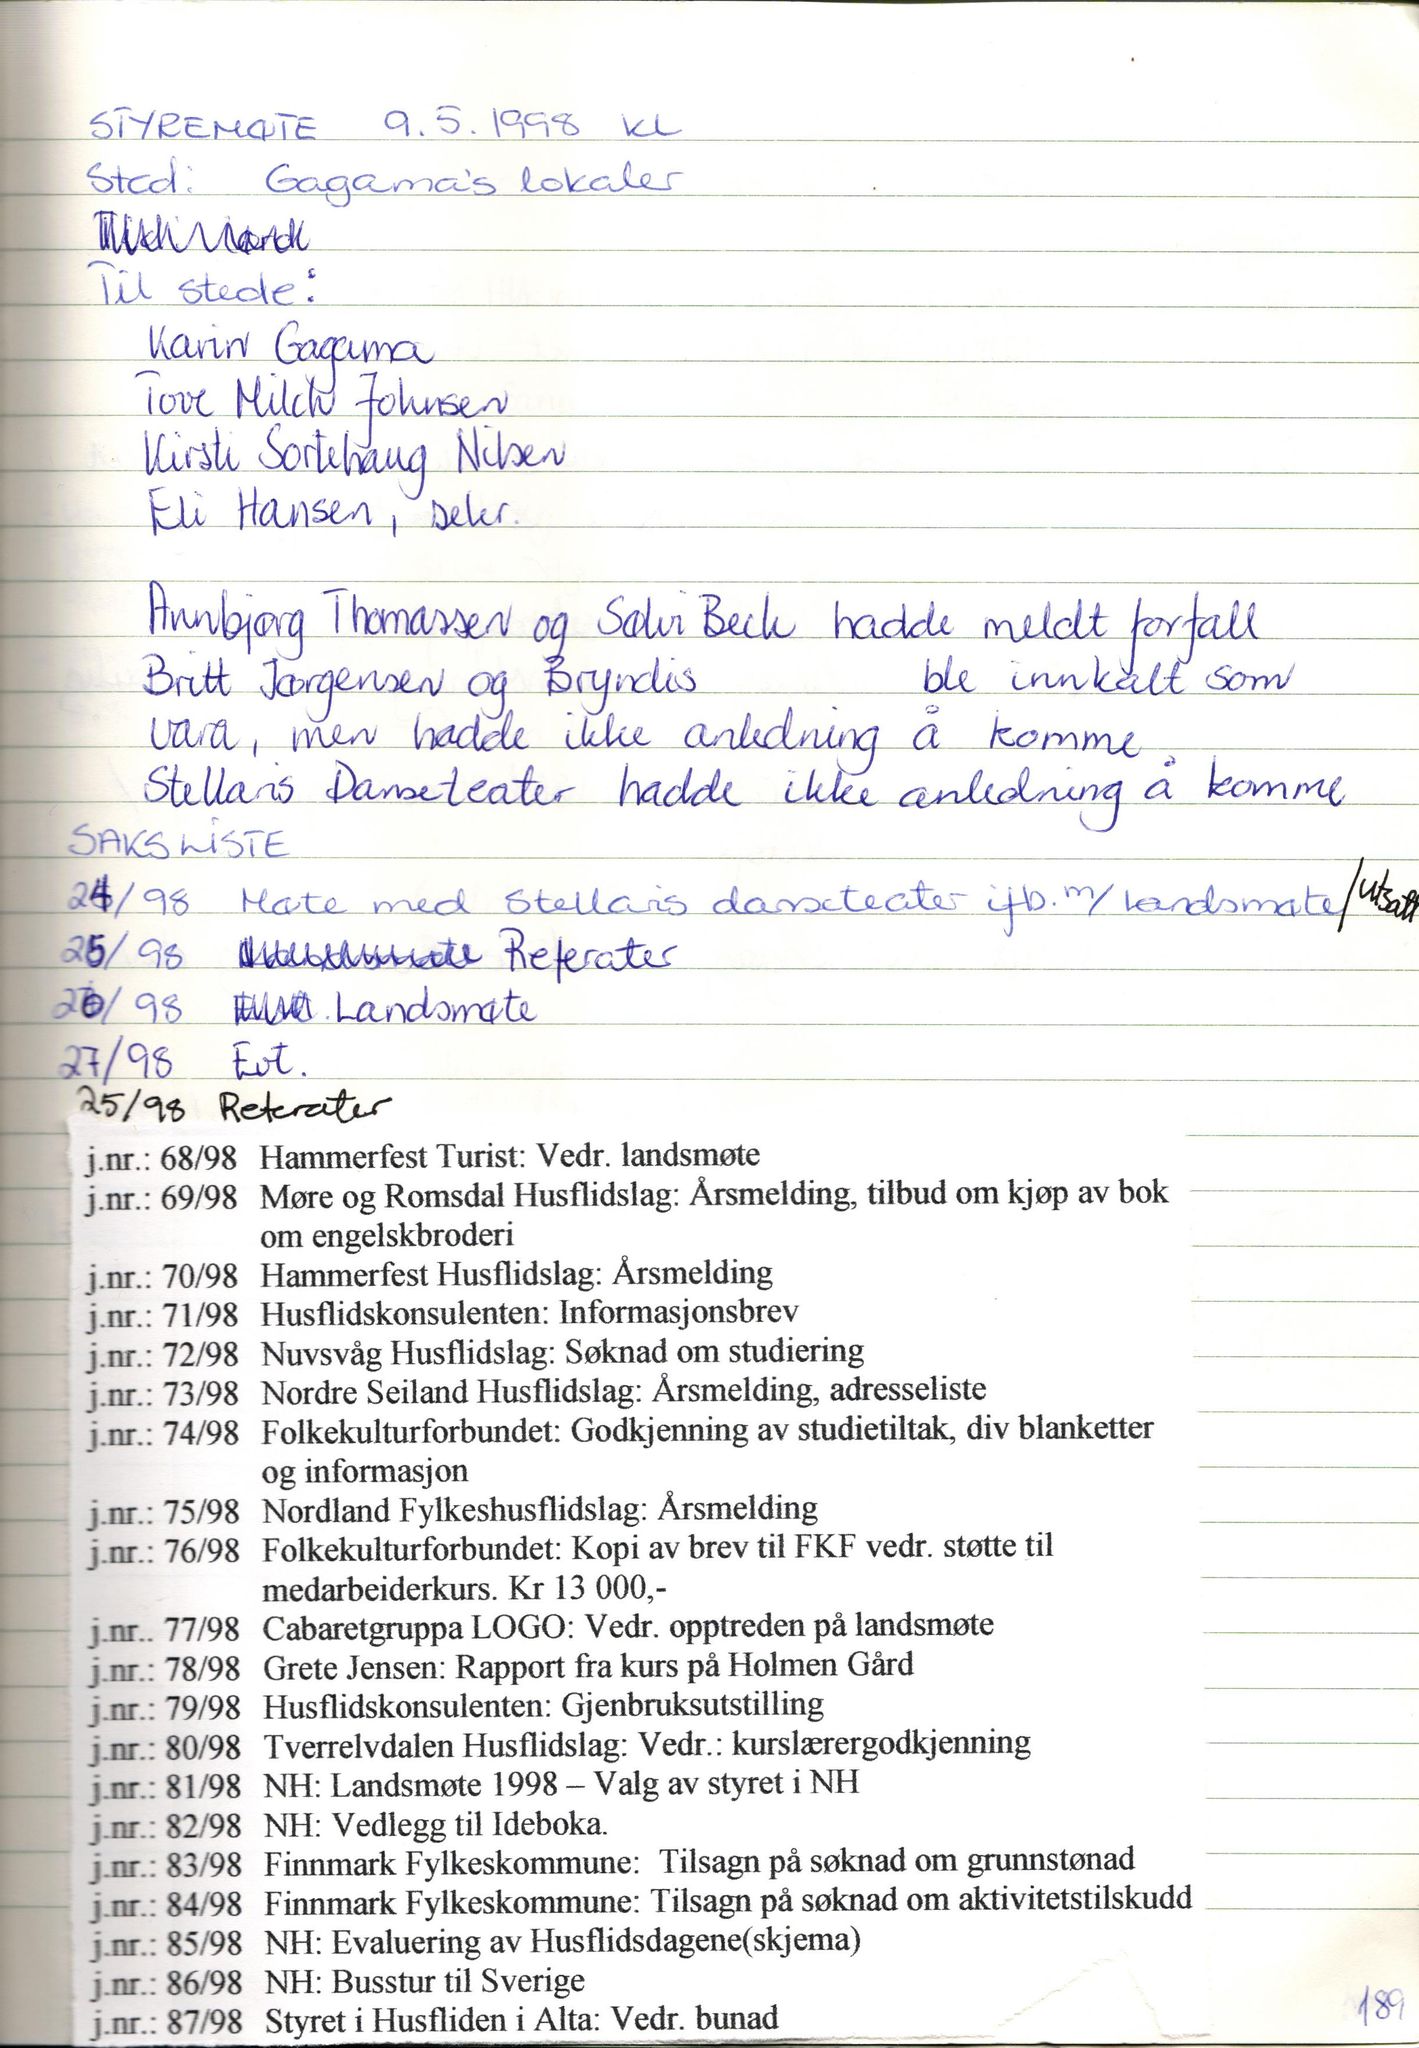 STYREMØTE 9.5.1998 KL
Sted: Gagama's lokaler
Til stede:
Karin Gagama
Tove Milch Johnsen
Kirsti Sortehaug Nilsen
Eli Hansen, sekr.
Annbjørg Thomassen og Sølvi Beck hadde meldt forfall
Britt Jørgensen og Bryndis ble innkalt som
vara, men hadde ikke anledning å komme.
Stellaris Danseteater hadde ikke anledning å komme
SAKSLISTE
24/98 Møte med Stellaris danseteater ifb. m/ Landsmøte /utsatt
25/98 Referater
26/98 Landsmøte
27/98 Evt.
25/98 Referater
j.nr.: 68/98 Hammerfest Turist: Vedr. landsmøte
j.nr.: 69/98 Møre og Romsdal Husflidslag: Årsmelding, tilbud om kjøp av bok
om engelskbroderi
j.nr.: 70/98 Hammerfest Husflidslag: Årsmelding
j.nr.: 71/98 Husflidskonsulenten: Informasjonsbrev
j.nr.: 72/98 Nuvsvåg Husflidslag: Søknad om studiering
j.nr.: 73/98 Nordre Seiland Husflidslag: Årsmelding, adresseliste
j.nr.: 74/98 Folkekulturforbundet: Godkjenning av studietiltak, div blanketter
og informasjon
j.nr.: 75/98 Nordland Fylkeshusflidslag: Årsmelding
j.nr.: 76/98 Folkekulturforbundet: Kopi av brev til FKF vedr. støtte til
medarbeiderkurs. Kr 13 000,-
j.nr.. 77/98 Cabaretgruppa LOGO: Vedr. opptreden på landsmøte
j.nr.: 78/98 Grete Jensen: Rapport fra kurs på Holmen Gård
j.nr.: 79/98 Husflidskonsulenten: Gjenbruksutstilling
j.nr.: 80/98 Tverrelvdalen Husflidslag: Vedr.: kurslærergodkjenning
j.nr.: 81/98 NH: Landsmøte 1998 – Valg av styret i NH
j.nr.: 82/98 NH: Vedlegg til Ideboka.
j.nr.: 83/98 Finnmark Fylkeskommune: Tilsagn på søknad om grunnstønad
j.nr.: 84/98 Finnmark Fylkeskommune: Tilsagn på søknad om aktivitetstilskudd
j.nr.: 85/98 NH: Evaluering av Husflidsdagene(skjema)
j.nr.: 86/98 NH: Busstur til Sverige
j.nr.: 87/98 Styret i Husfliden i Alta: Vedr. bunad
189